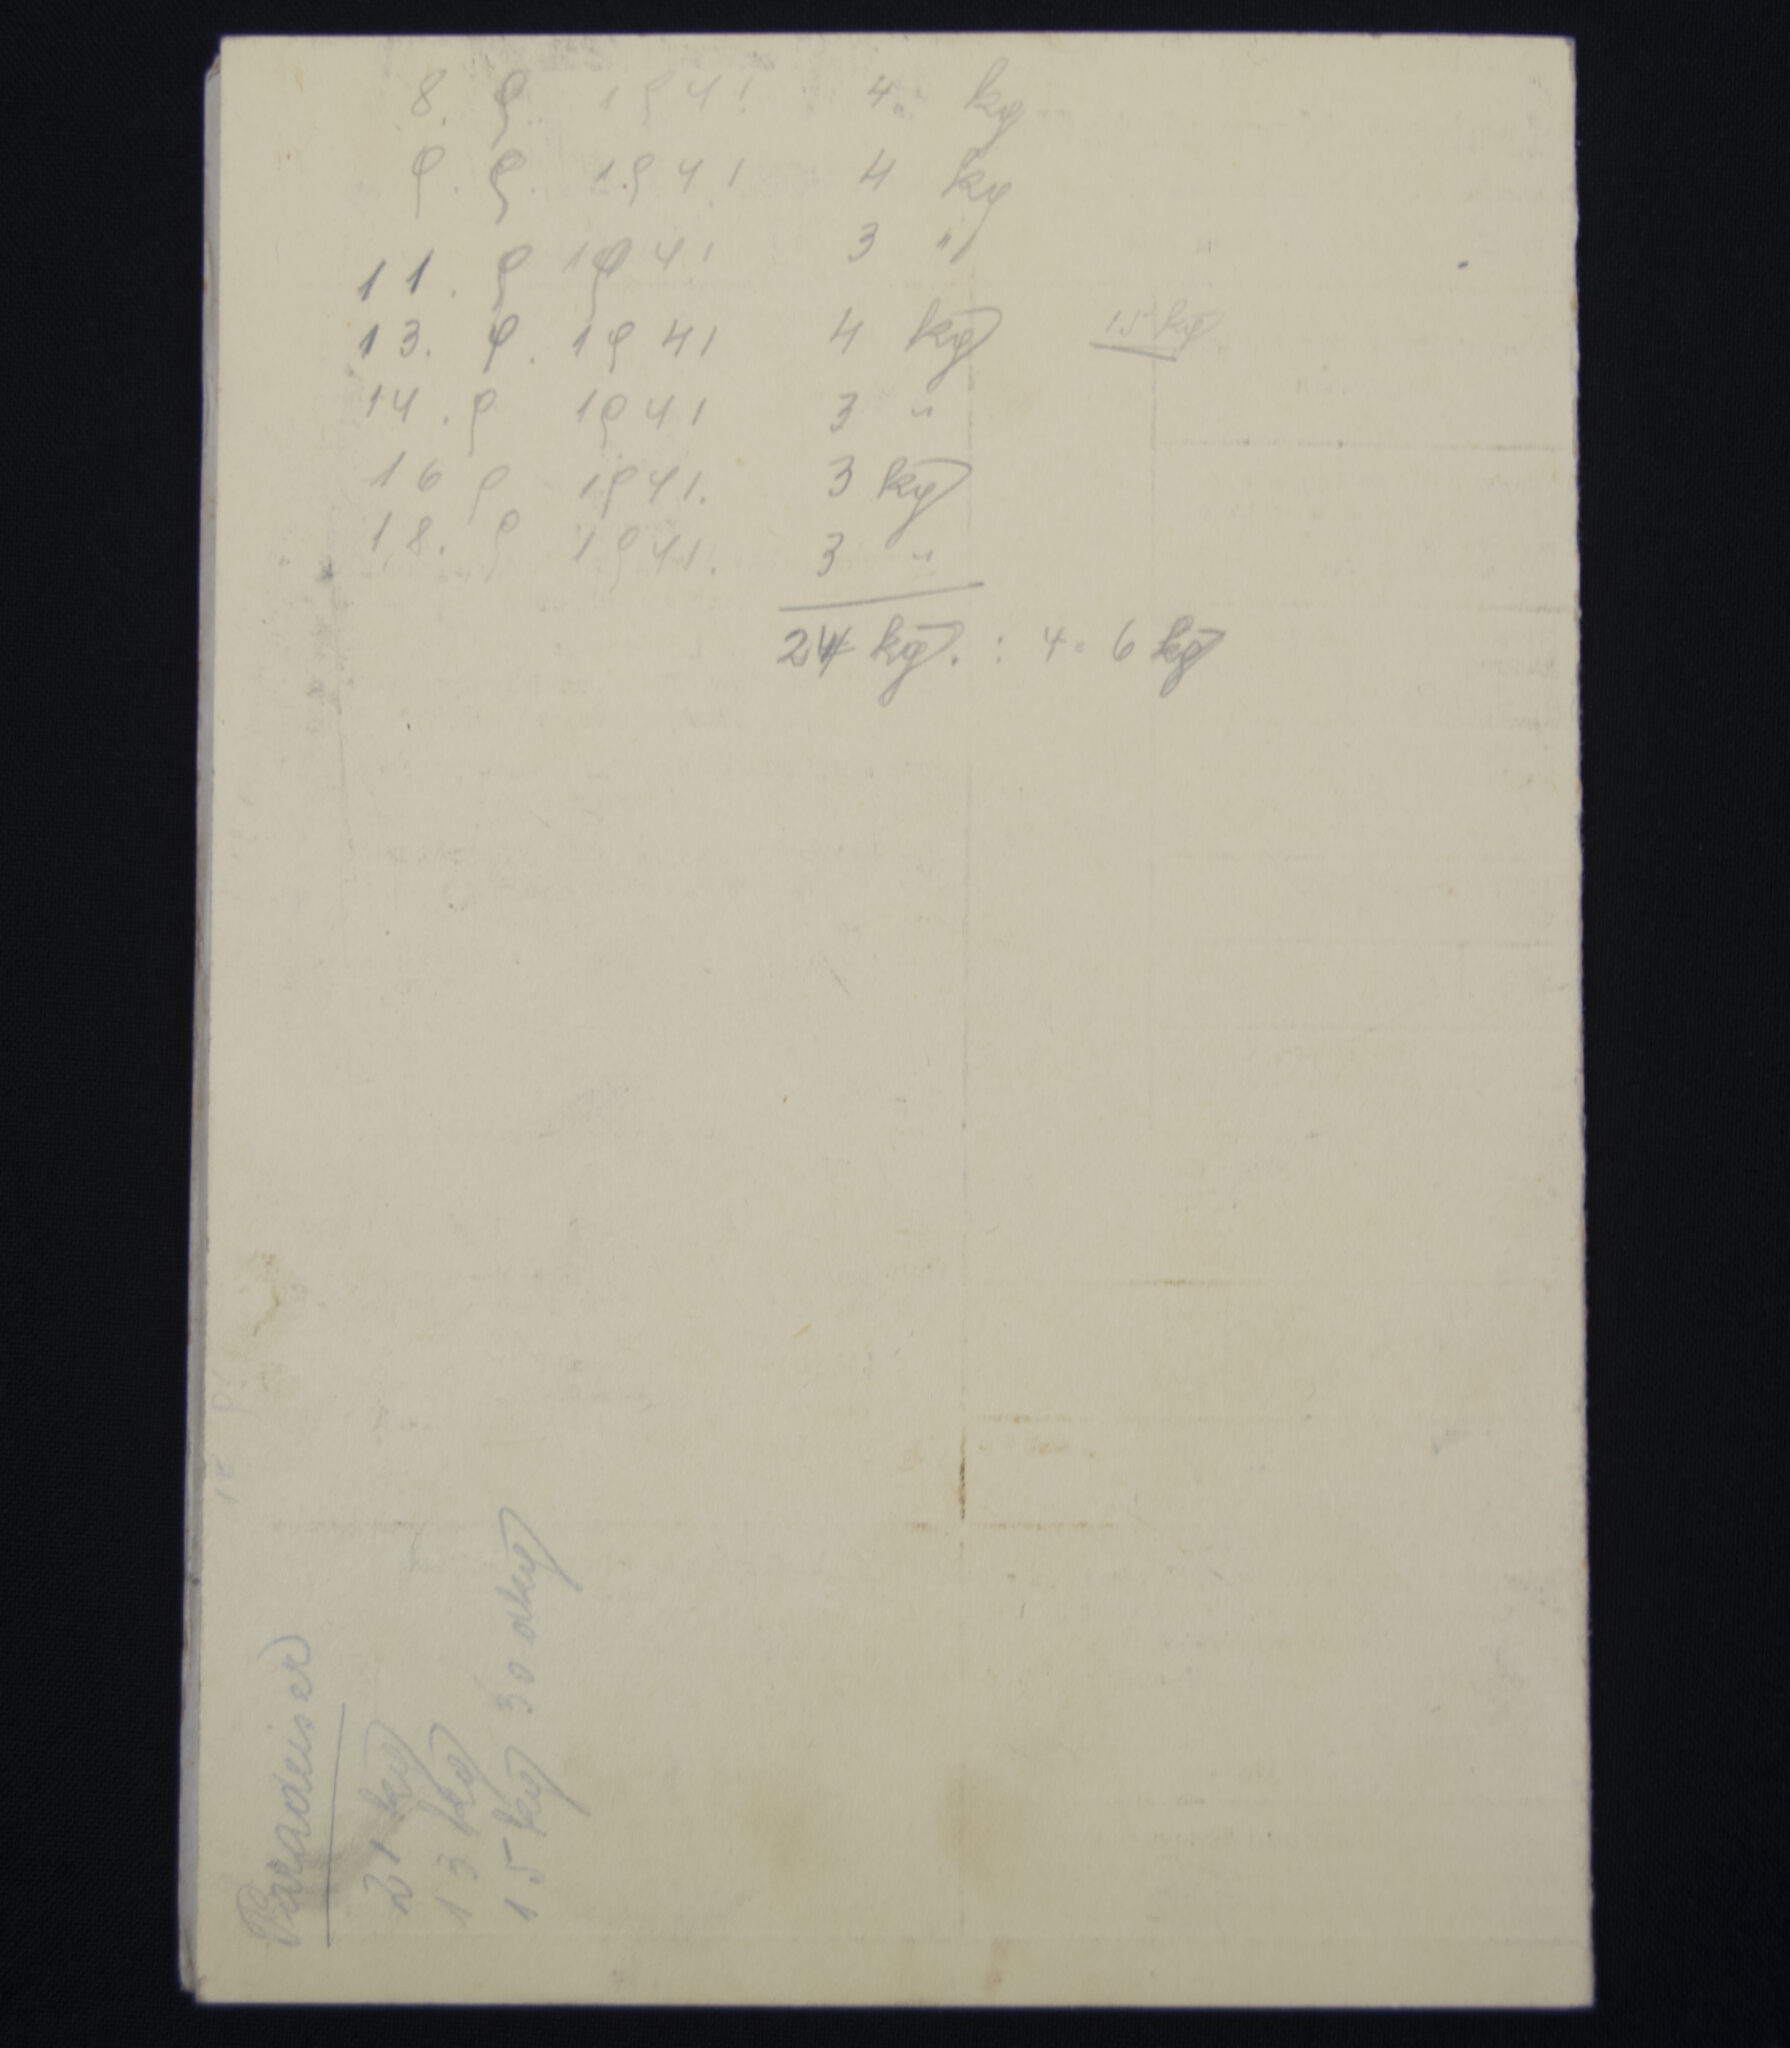 8. 9. 1941. 4. kg
9. 9. 1941 4 kg
11. 9 1941 3 "
13. 9. 1941 4 kg 15 kg
14. 9 1941 3 "
16 9 1941. 3 kg
18. 9 1941. 3 "
24 kg. : 4 = 6 kg
Paradeiser
21 kg
13 kg
15 kg 30 dkg